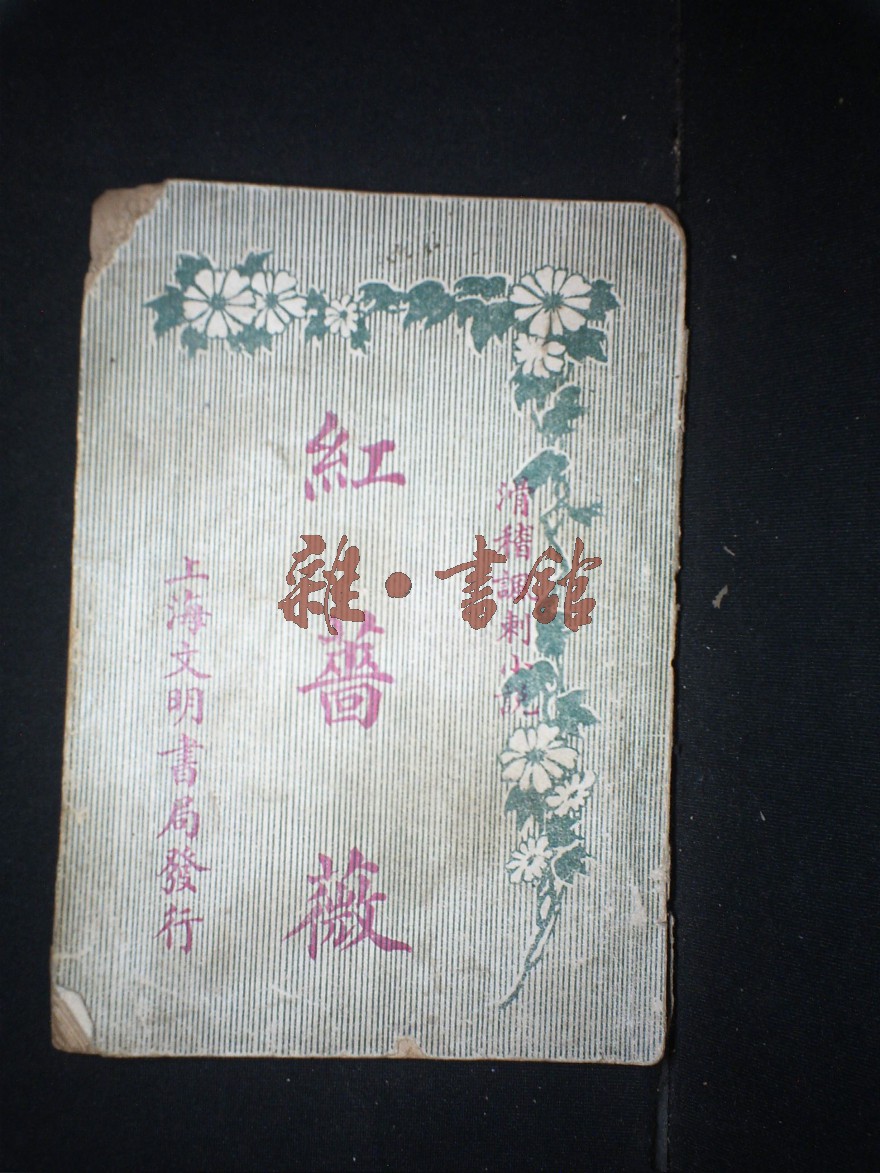 滑稽諷刺小說
紅薔薇
上海文明書局發行
雜·書館